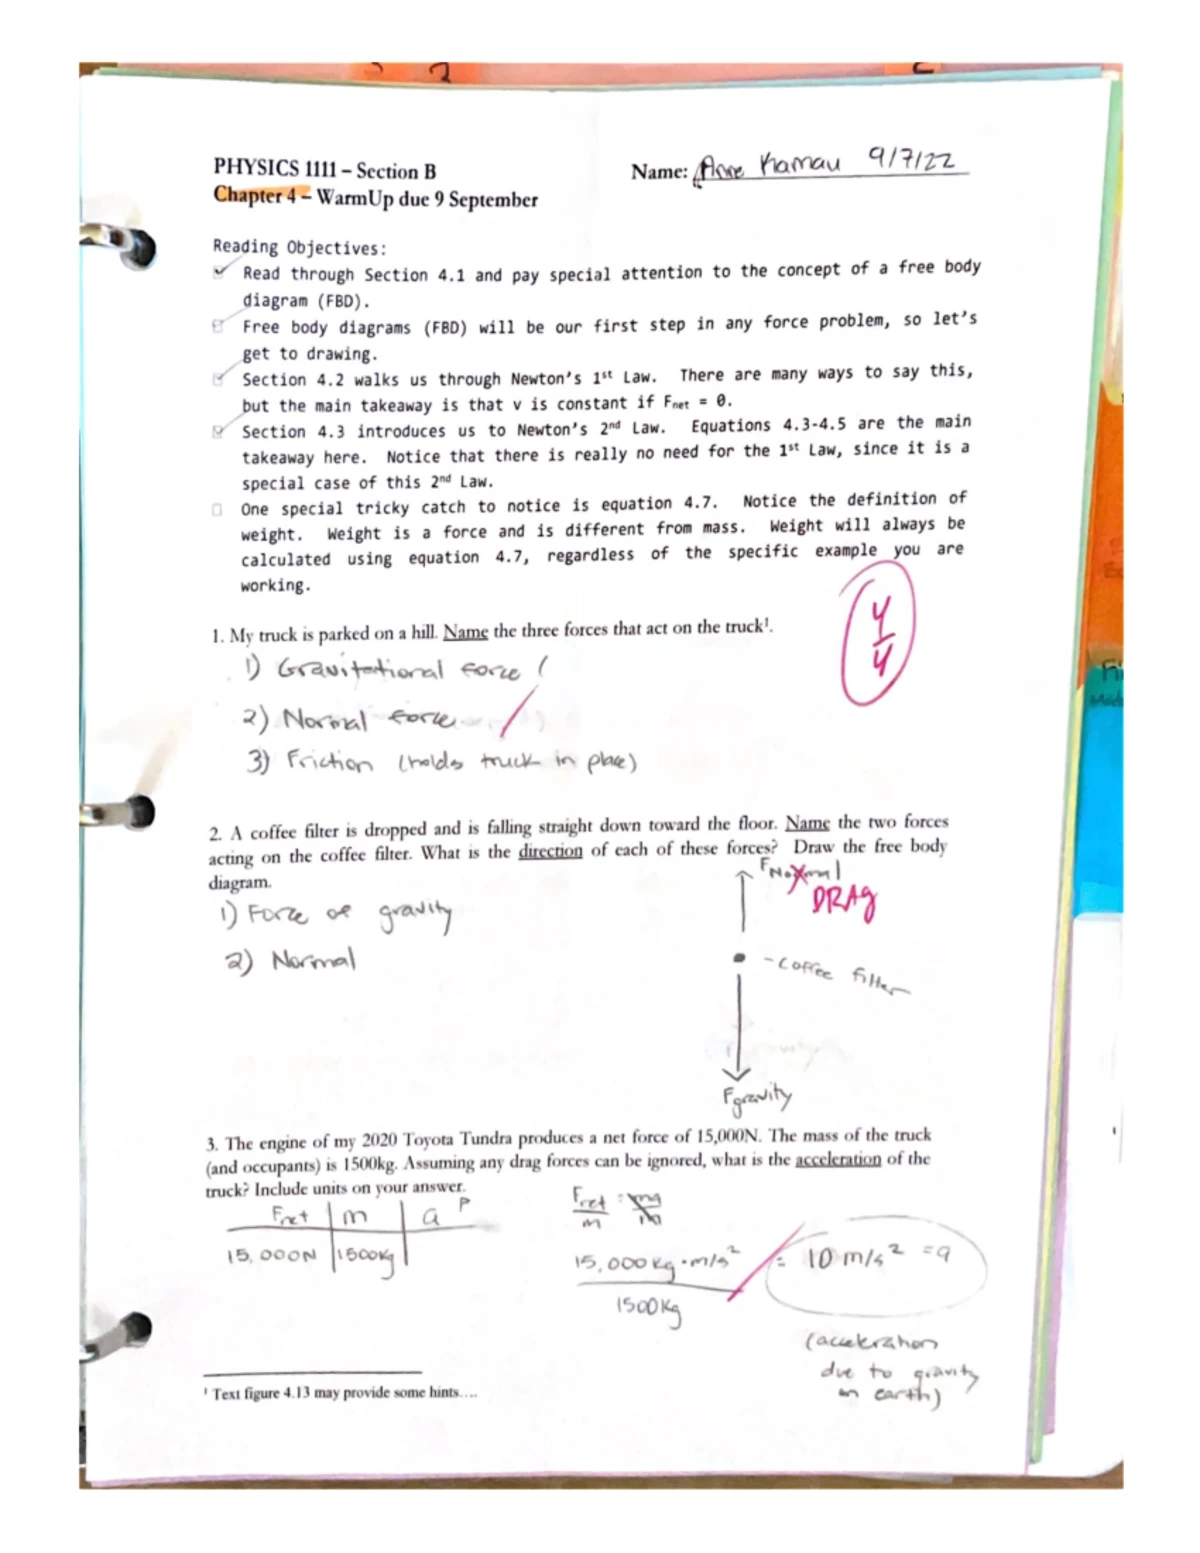 PHYSICS 1111 – Section B
Name: Anne Kamau 9/7/22
Chapter 4 – WarmUp due 9 September
Reading Objectives:
Read through Section 4.1 and pay special attention to the concept of a free body
diagram (FBD).
Free body diagrams (FBD) will be our first step in any force problem, so let's
get to drawing.
Section 4.2 walks us through Newton's 1st Law. There are many ways to say this,
but the main takeaway is that v is constant if Fnet = 0.
Section 4.3 introduces us to Newton's 2nd Law. Equations 4.3-4.5 are the main
takeaway here. Notice that there is really no need for the 1st Law, since it is a
special case of this 2nd Law.
One special tricky catch to notice is equation 4.7. Notice the definition of
weight. Weight is a force and is different from mass. Weight will always be
calculated using equation 4.7, regardless of the specific example you are
working.
4/4
1. My truck is parked on a hill. Name the three forces that act on the truck¹.
1) Gravitational force (
2) Normal force
3) Friction (holds truck in place)
2. A coffee filter is dropped and is falling straight down toward the floor. Name the two forces
acting on the coffee filter. What is the direction of each of these forces? Draw the free body
diagram.
FNormal
DRAG
1) Force of gravity
2) Normal
- coffee filter
Fgravity
3. The engine of my 2020 Toyota Tundra produces a net force of 15,000N. The mass of the truck
(and occupants) is 1500kg. Assuming any drag forces can be ignored, what is the acceleration of the
truck? Include units on your answer.
Fnet | m | a ?
15,000N | 1500kg |
Fnet/m = ma/m
15,000 kg·m/s² / 1500kg = 10 m/s² = a
(acceleration
due to gravity
on earth)
¹ Text figure 4.13 may provide some hints….